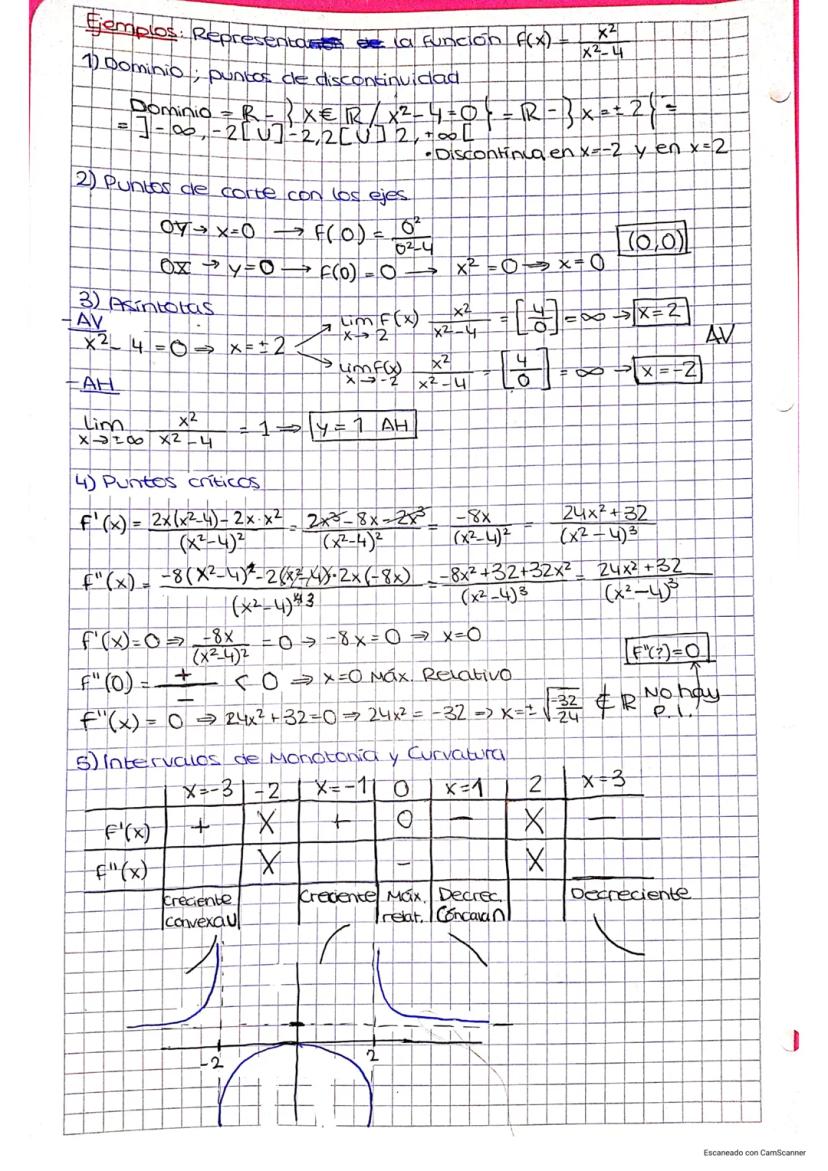 Ejemplos: Representa la función f(x) = x²/(x²-4)
1) Dominio ; puntos de discontinuidad
Dominio = R - } x ∈ R / x²-4=0 { = R - } x = ±2 { =
= ]-∞, -2[ U ]-2, 2[ U ] 2, +∞ [
• Discontinua en x=-2 y en x=2
2) Puntos de corte con los ejes
OY → x=0 → f(0) = 0²/(0²-4)
(0,0)
OX → y=0 → f(0) = 0 → x² = 0 → x=0
3) Asíntotas
- AV
x² - 4 = 0 ⇒ x = ±2
lim x→2 f(x) x²/(x²-4) = [4/0] = ∞ → x=2
lim x→-2 f(x) x²/(x²-4) = [4/0] = ∞ → x=-2
AV
- AH
lim x→±∞ x²/(x²-4) = 1 ⇒ y = 1 AH
4) Puntos críticos
f'(x) = (2x(x²-4) - 2x·x²)/(x²-4)² = (2x³ - 8x - 2x³)/(x²-4)² = -8x/(x²-4)² = (24x²+32)/(x²-4)³
f''(x) = (-8(x²-4)² - 2(x²-4)·2x(-8x))/(x²-4)⁴ ³ = (-8x²+32+32x²)/(x²-4)³ = (24x²+32)/(x²-4)³
f'(x)=0 ⇒ -8x/(x²-4)² = 0 → -8x=0 ⇒ x=0
f''(?)=0
f''(0) = +/- < 0 ⇒ x=0 Máx. Relativo
f''(x) = 0 ⇒ 24x²+32=0 ⇒ 24x² = -32 ⇒ x=±√(-32/24) ∉ R
No hay
P.I.
5) Intervalos de Monotonía y Curvatura
x=-3 -2 x=-1 0 x=1 2 x=3
f'(x) + X + 0 - X -
f''(x) X - X
Creciente Creciente Máx. Decrec. Decreciente
convexa U relat. Cóncava ∩
-2 2
Escaneado con CamScanner